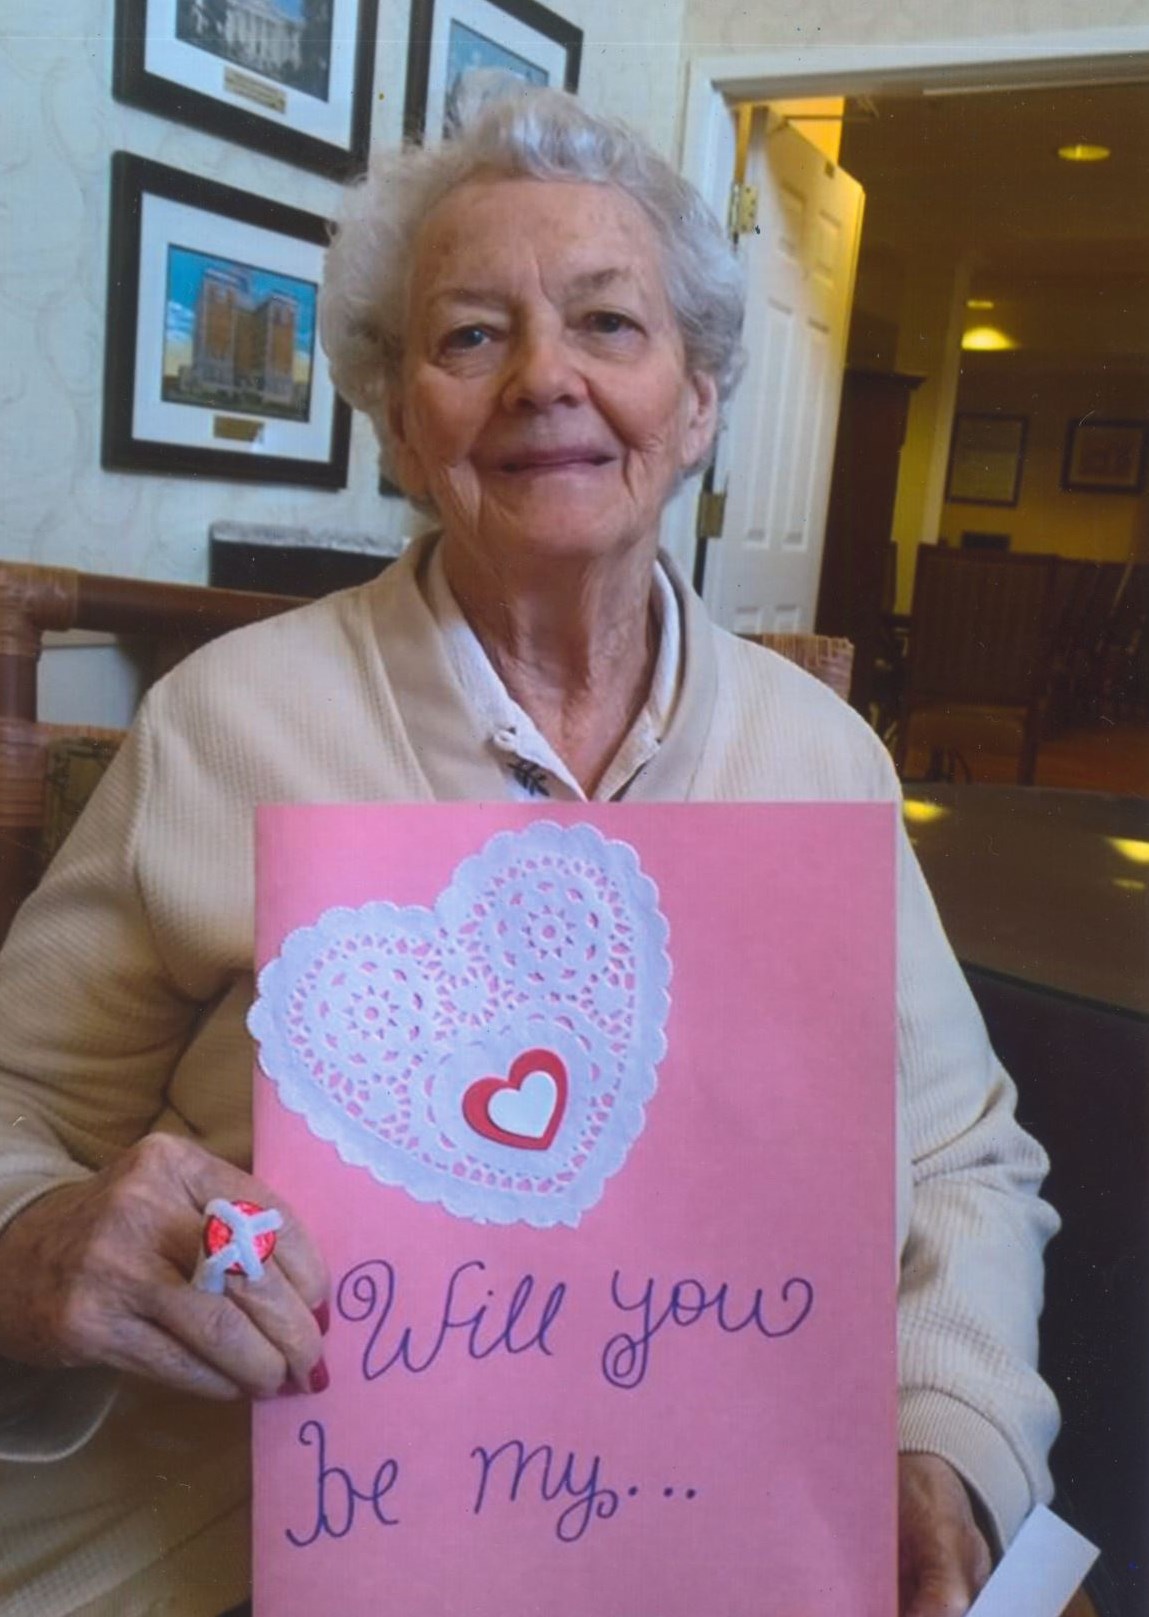 Will you
be my...